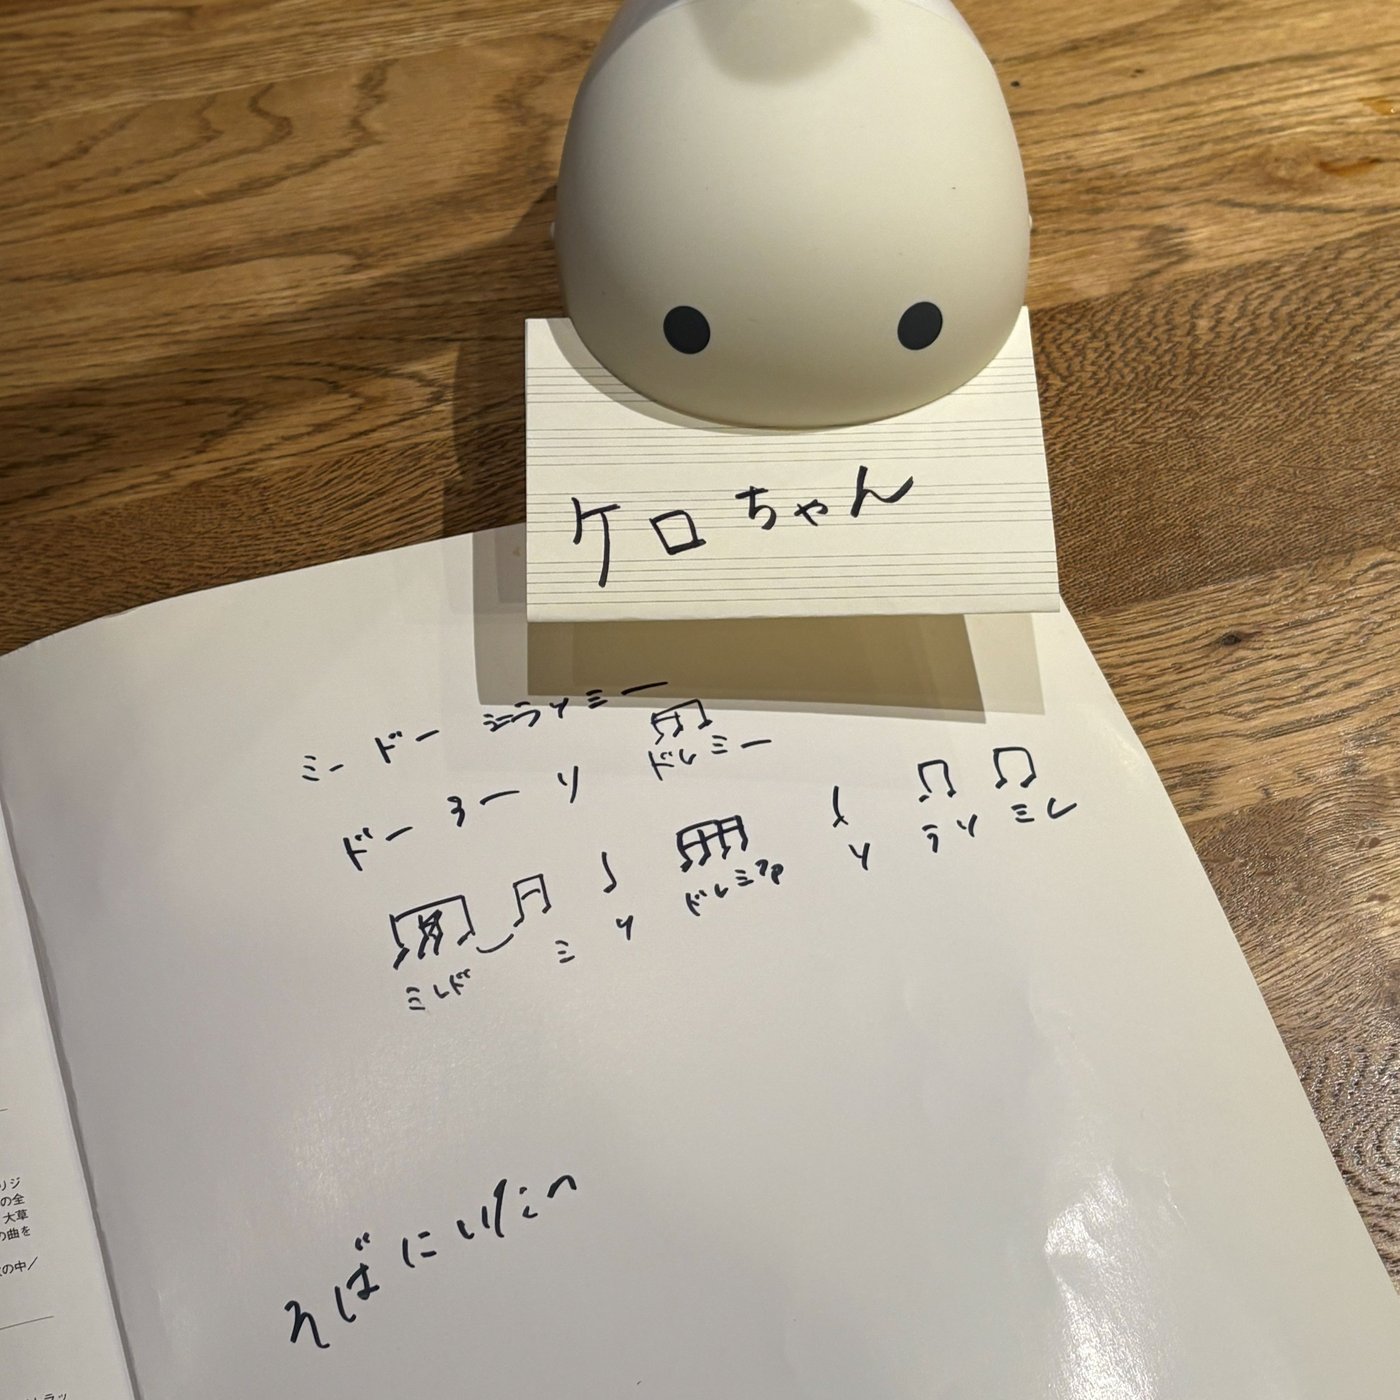 ケロちゃん
ミー ドー ミラソミー
ドー ソ ドレミー
ミレド ミ ソ ドレミファ ソ ラソ ミレ
そばに
リジ
の全
大草
の曲を
の中/
トラッ